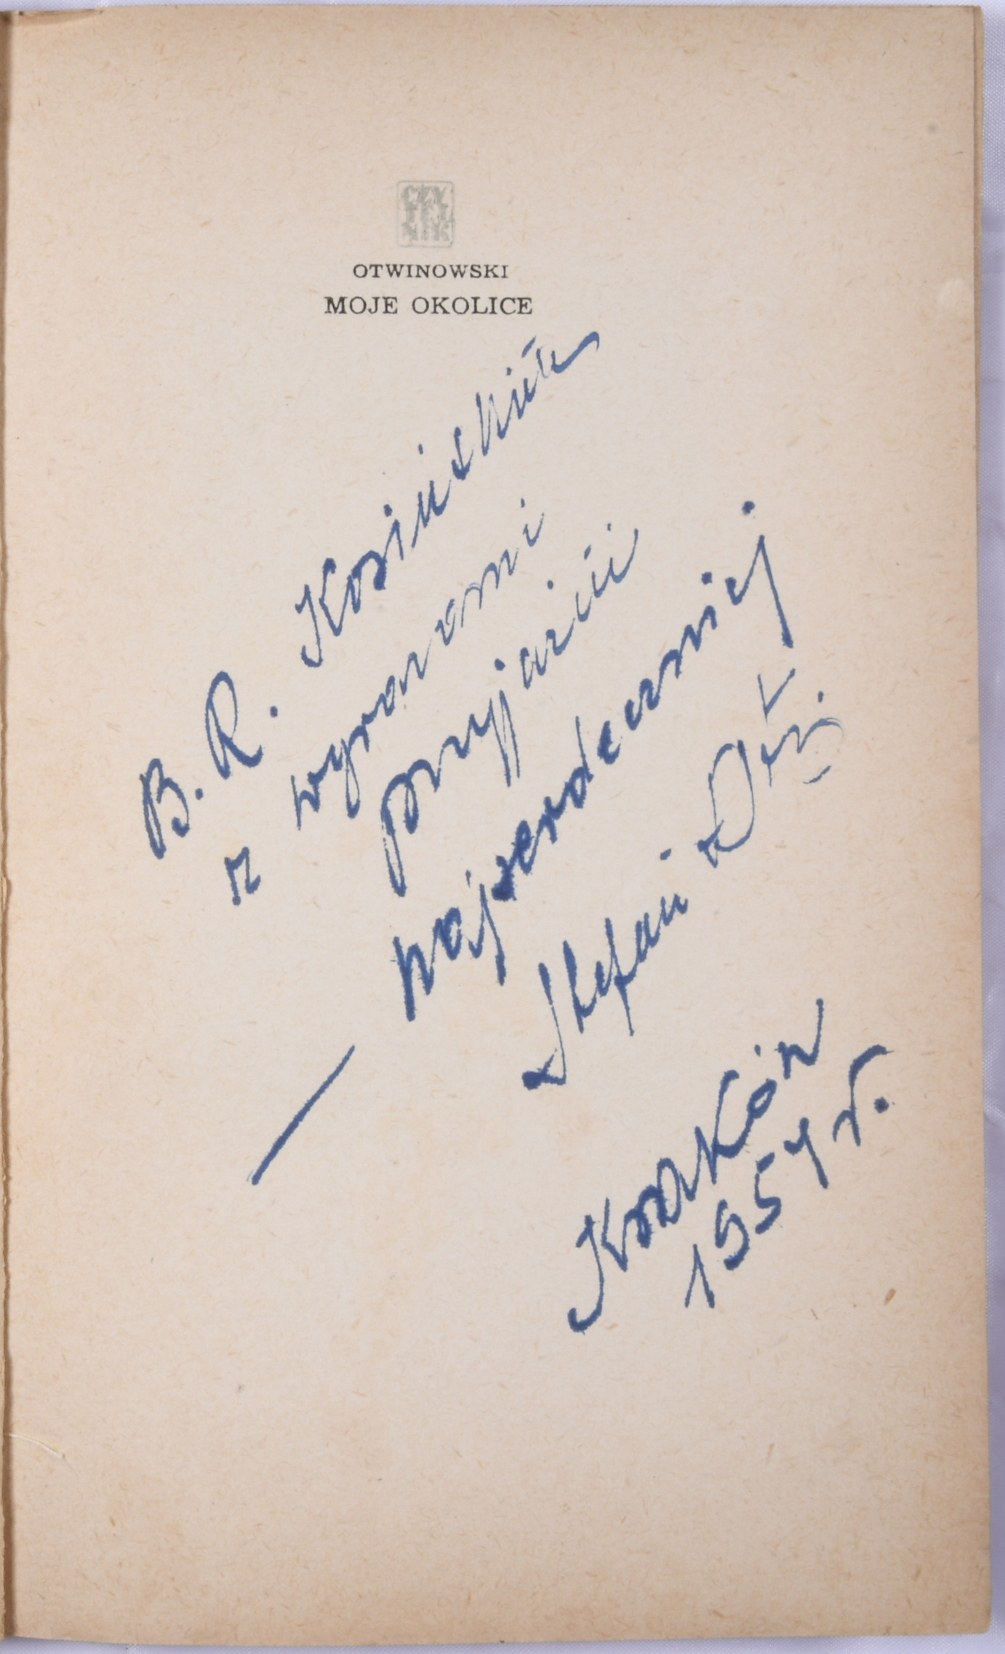 CZY
TEL
NIK
OTWINOWSKI
MOJE OKOLICE
B. R. Kosińskim
z wyrazami
przyjaźni
najserdeczniej
Stefan Otw.
Kraków
1957 r.